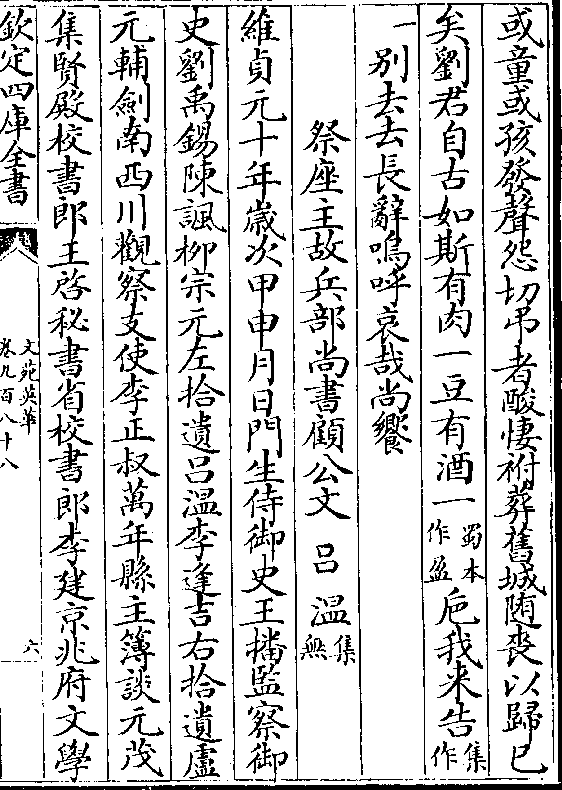 或童或孩發聲怨切弔者酸悽祔葬舊城随喪以歸已
矣劉君自古如斯有肉一豆有酒一蜀本作盈巵我来告集作
一别去去長辭嗚呼哀哉尚饗
祭座主故兵部尚書顧公文 吕温集無
維貞元十年歲次甲申月日門生侍御史王播監察御
史劉禹錫陳諷栁宗元左拾遺吕温李逢吉右拾遺盧
元輔劍南西川觀察支使李正叔萬年縣主簿談元茂
集賢殿校書郎王啓秘書省校書郎李建京兆府文學
欽定四庫全書
文苑英華
卷九百八十八
六